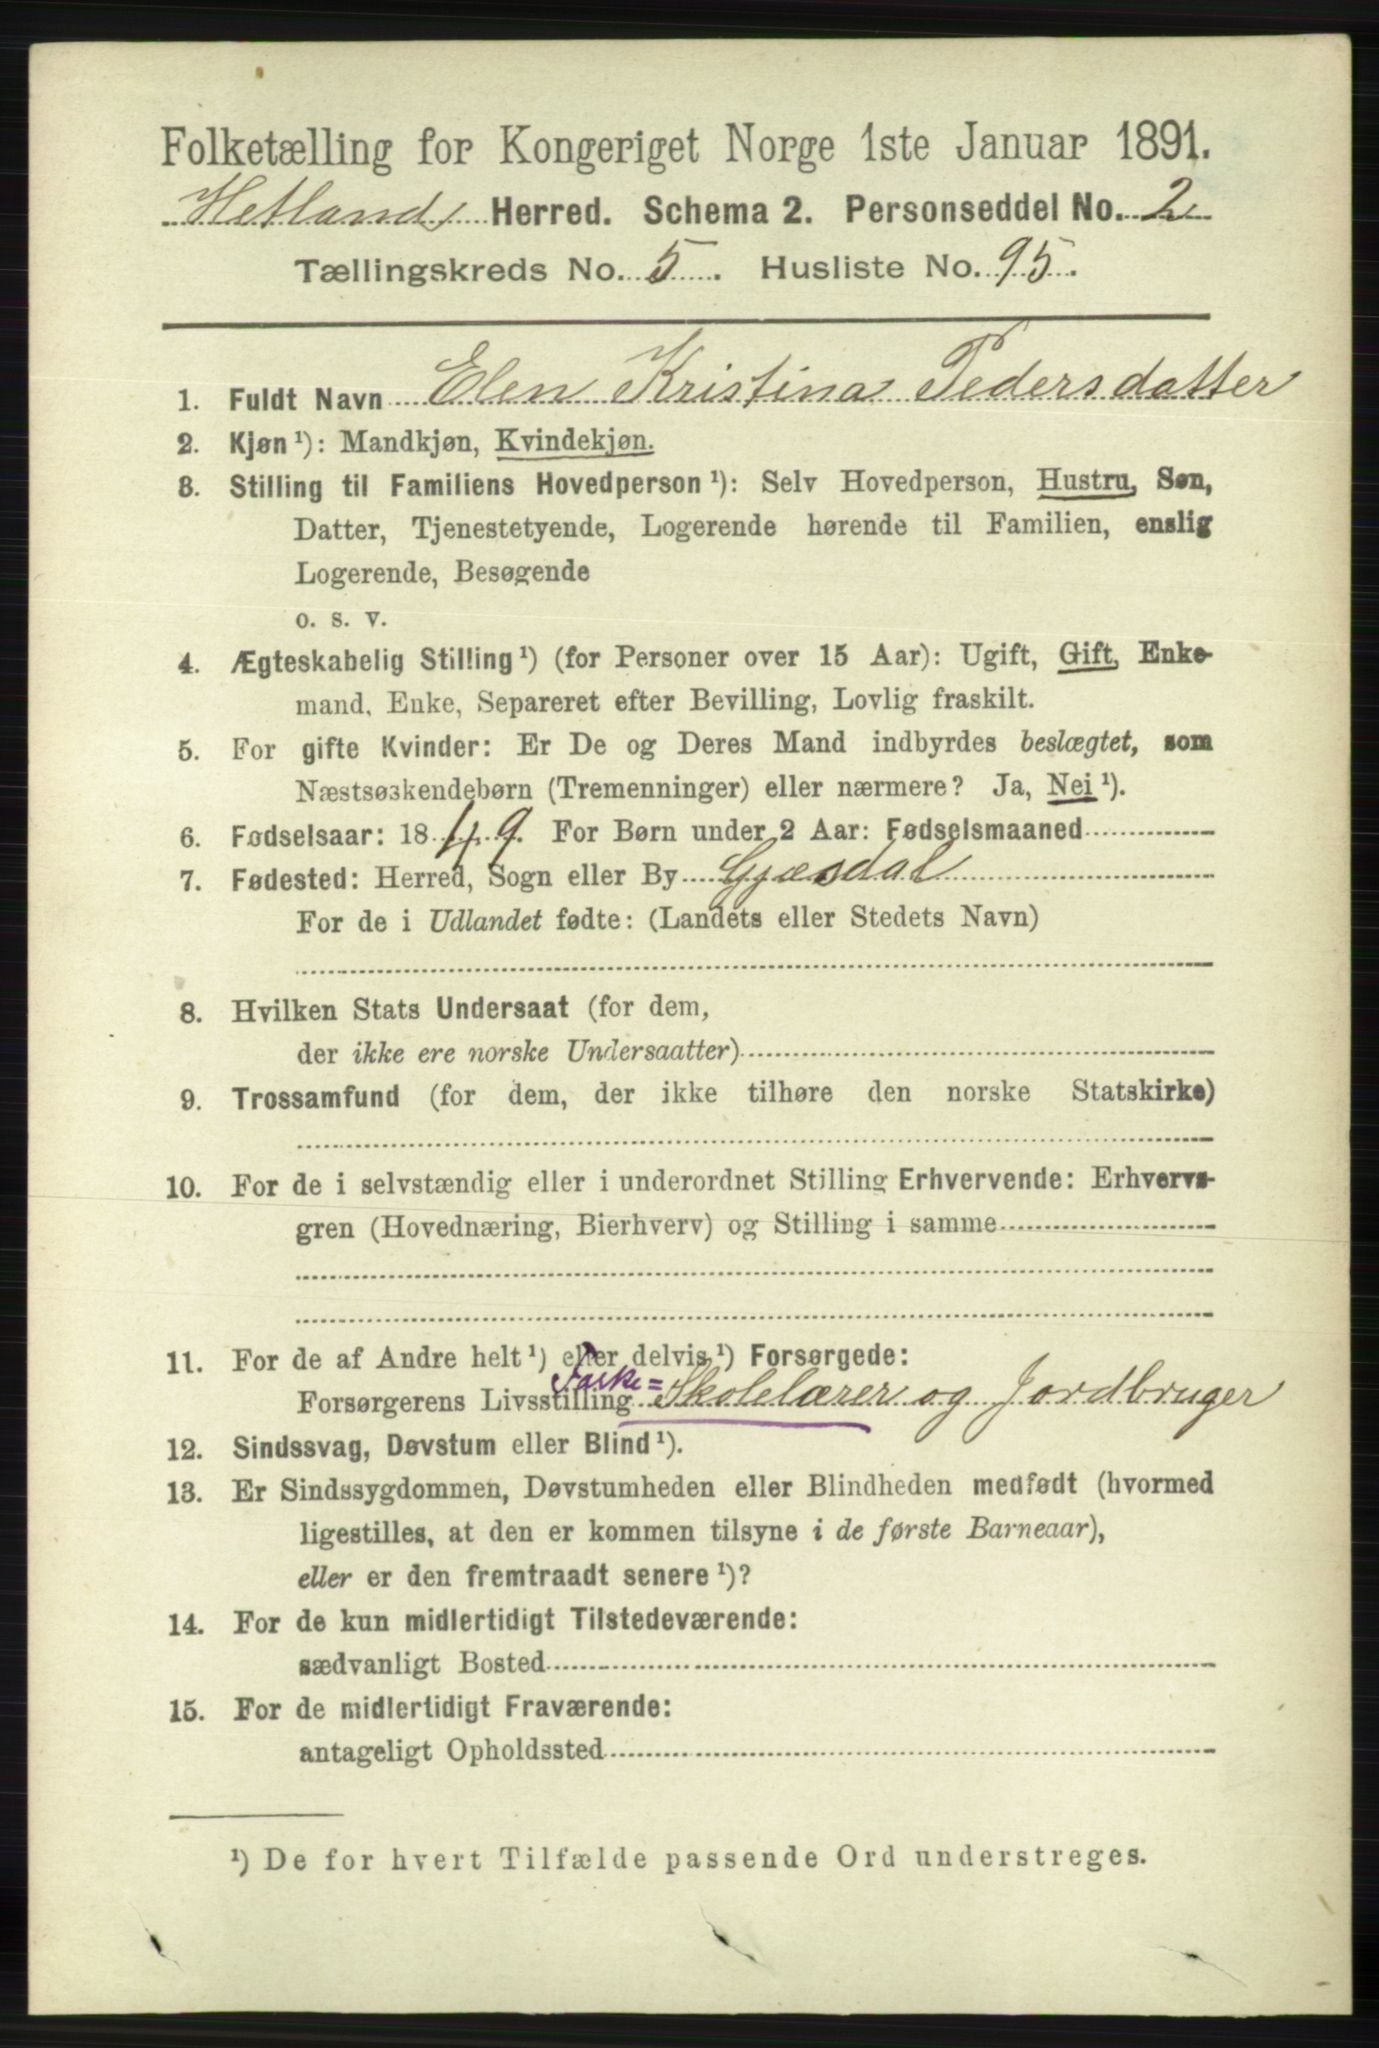 Folketælling for Kongeriget Norge 1ste Januar 1891.
Hetlands Herred. Schema 2. Personseddel No. 2
Tællingskreds No. 5. Husliste No. 95.
1. Fuldt Navn Elen Kristina Pedersdatter
2. Kjøn ¹): Mandkjøn, Kvindekjøn.
3. Stilling til Familiens Hovedperson ¹): Selv Hovedperson, Hustru, Søn,
Datter, Tjenestetyende, Logerende hørende til Familien, enslig
Logerende, Besøgende
o. s. v.
4. Ægteskabelig Stilling ¹) (for Personer over 15 Aar): Ugift, Gift, Enke-
mand, Enke, Separeret efter Bevilling, Lovlig fraskilt.
5. For gifte Kvinder: Er De og Deres Mand indbyrdes beslægtet, som
Næstsøskendebørn (Tremenninger) eller nærmere? Ja, Nei ¹).
6. Fødselsaar: 1849. For Børn under 2 Aar: Fødselsmaaned
7. Fødested: Herred, Sogn eller By Gjæsdal
For de i Udlandet fødte: (Landets eller Stedets Navn)
8. Hvilken Stats Undersaat (for dem,
der ikke ere norske Undersaatter)
9. Trossamfund (for dem, der ikke tilhøre den norske Statskirke)
10. For de i selvstændig eller i underordnet Stilling Erhvervende: Erhvervs-
gren (Hovednæring, Bierhverv) og Stilling i samme
11. For de af Andre helt ¹) eller delvis ¹) Forsørgede:
Forsørgerens Livsstilling Skolelærer og Jordbruger
12. Sindssvag, Døvstum eller Blind ¹).
13. Er Sindssygdommen, Døvstumheden eller Blindheden medfødt (hvormed
ligestilles, at den er kommen tilsyne i de første Barneaar),
eller er den fremtraadt senere ¹)?
14. For de kun midlertidigt Tilstedeværende:
sædvanligt Bosted
15. For de midlertidigt Fraværende:
antageligt Opholdssted
¹) De for hvert Tilfælde passende Ord understreges.